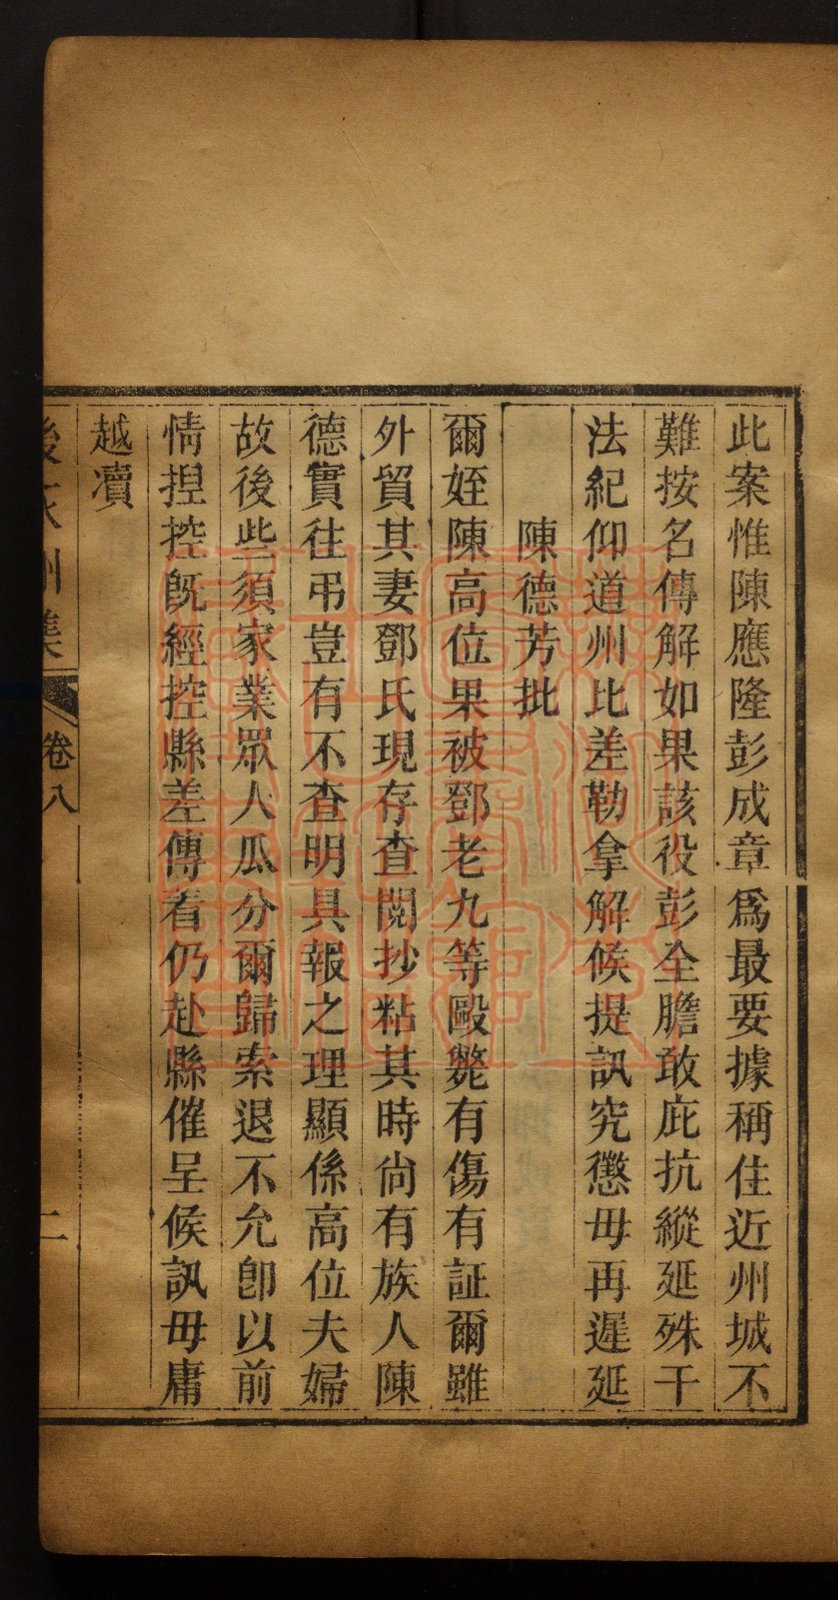 此案惟陳應隆彭成章爲最要據稱住近州城不
難按名傳解如果該役彭全膽敢庇抗縱延殊干
法紀仰道州比差勒拿解候提訊究懲毋再遲延
陳德芳批
爾姪陳高位果被鄧老九等毆斃有傷有証爾雖
外貿其妻鄧氏現存查閱抄粘其時尙有族人陳
德實往弔豈有不查明具報之理顯係高位夫婦
故後些須家業眾人瓜分爾歸索退不允卽以前
情揑控旣經控縣差傳着仍赴縣催呈候訊毋庸
越瀆
卷八
二